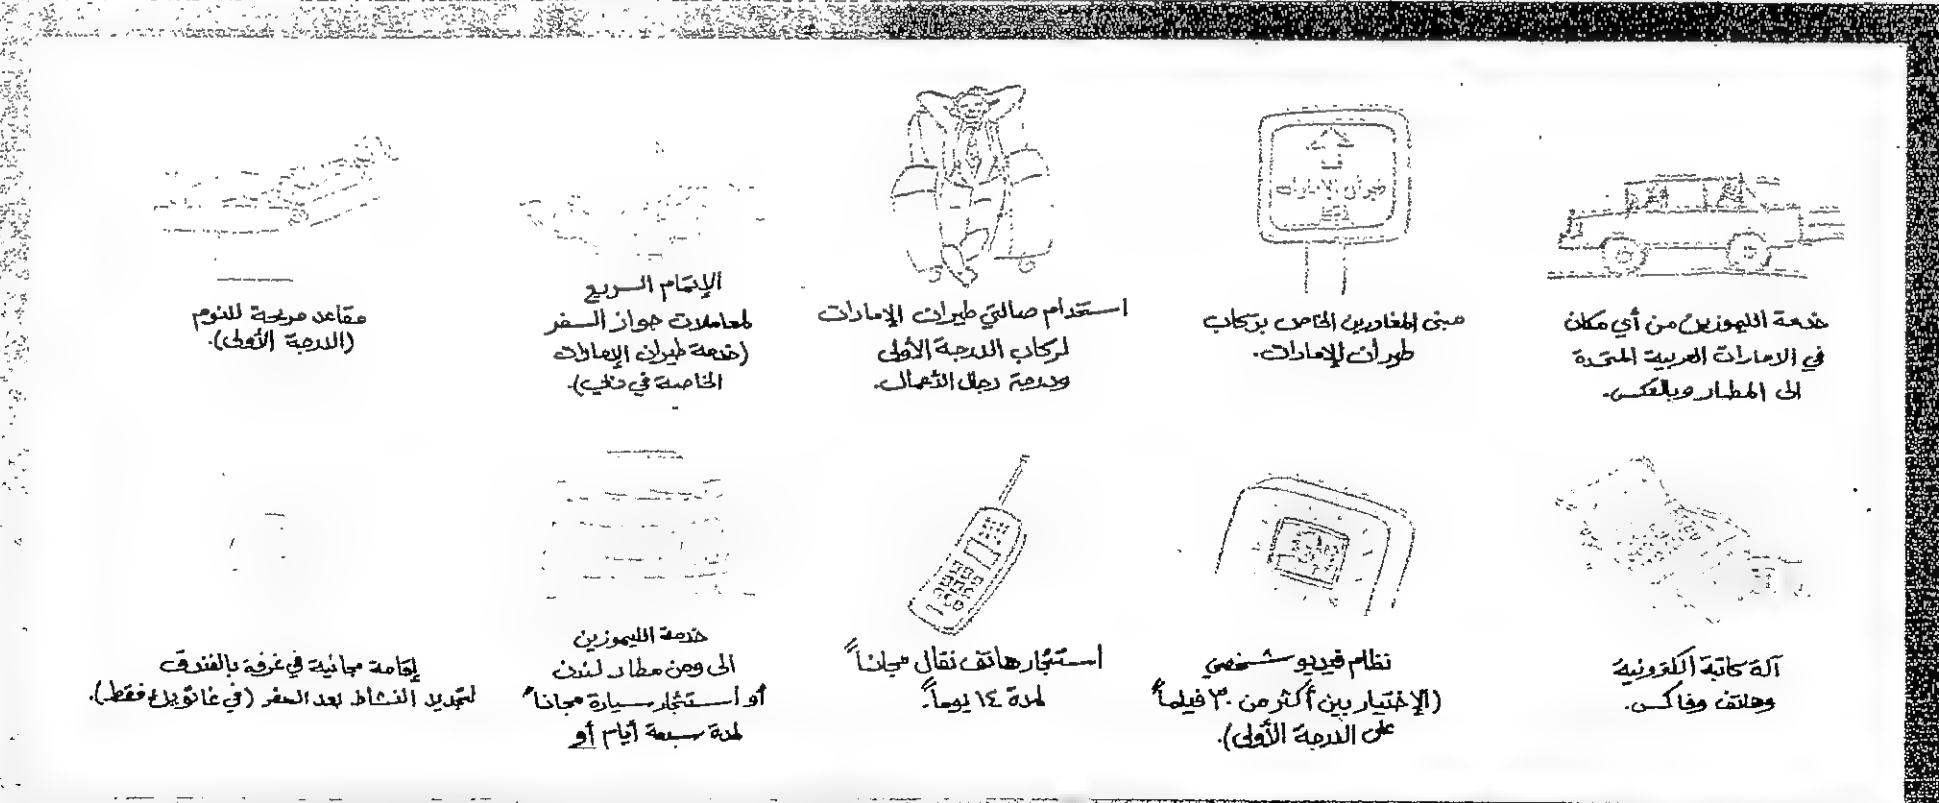 طيران الإمارات
خدمة الليموزين من أي مكان
في الامارات العربية المتحدة
الى المطار وبالعكس.
مبنى المغادرين الخاص بركاب
طيران الإمارات.
استخدام صالتي طيران الإمارات
لركاب الدرجة الأولى
ودرجة رجال الأعمال.
الإتمام السريع
لمعاملات جواز السفر
(خدمة طيران الإمارات
الخاصة في دبي).
مقاعد مريحة للنوم
(الدرجة الأولى).
آلة كاتبة الكترونية
وهاتف وفاكس.
نظام فيديو شخصي
(الإختيار بين أكثر من ٣٠ فيلماً
على الدرجة الأولى).
استئجار هاتف نقال مجاناً
لمدة ١٤ يوماً.
خدمة الليموزين
الى ومن مطار لندن
أو استئجار سيارة مجاناً
لمدة سبعة أيام أو
إقامة مجانية في غرفة بالفندق
لتجديد النشاط بعد السفر (في غاتويك فقط).